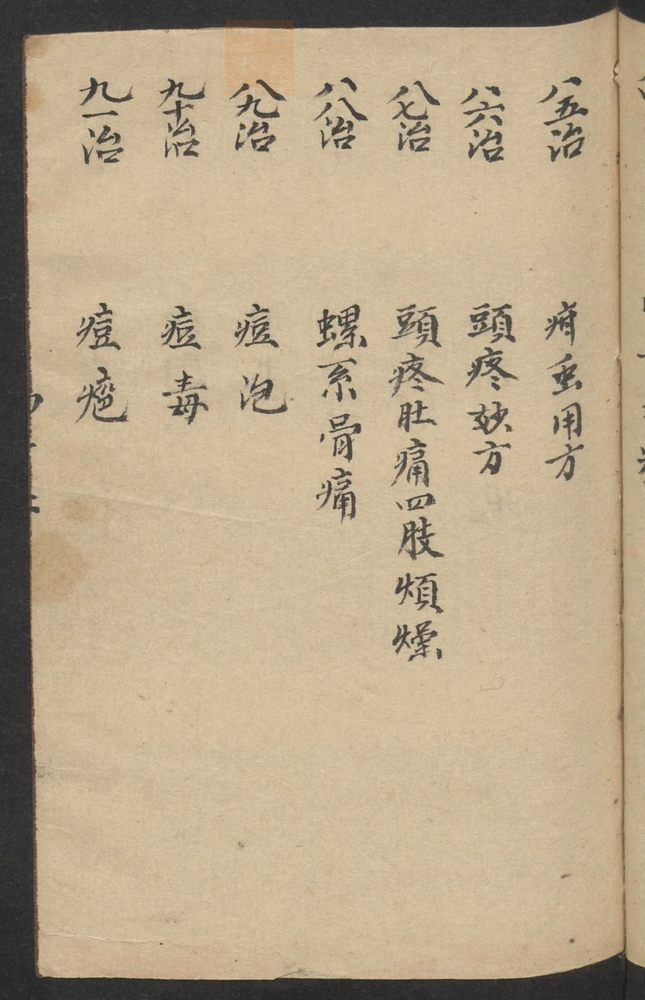 八五治 疳重用方
八六治 頭疼妙方
八七治 頭疼肚痛四肢煩燥
八八治 螺系骨痛
八九治 痘泡
九十治 痘毒
九一治 痘疤